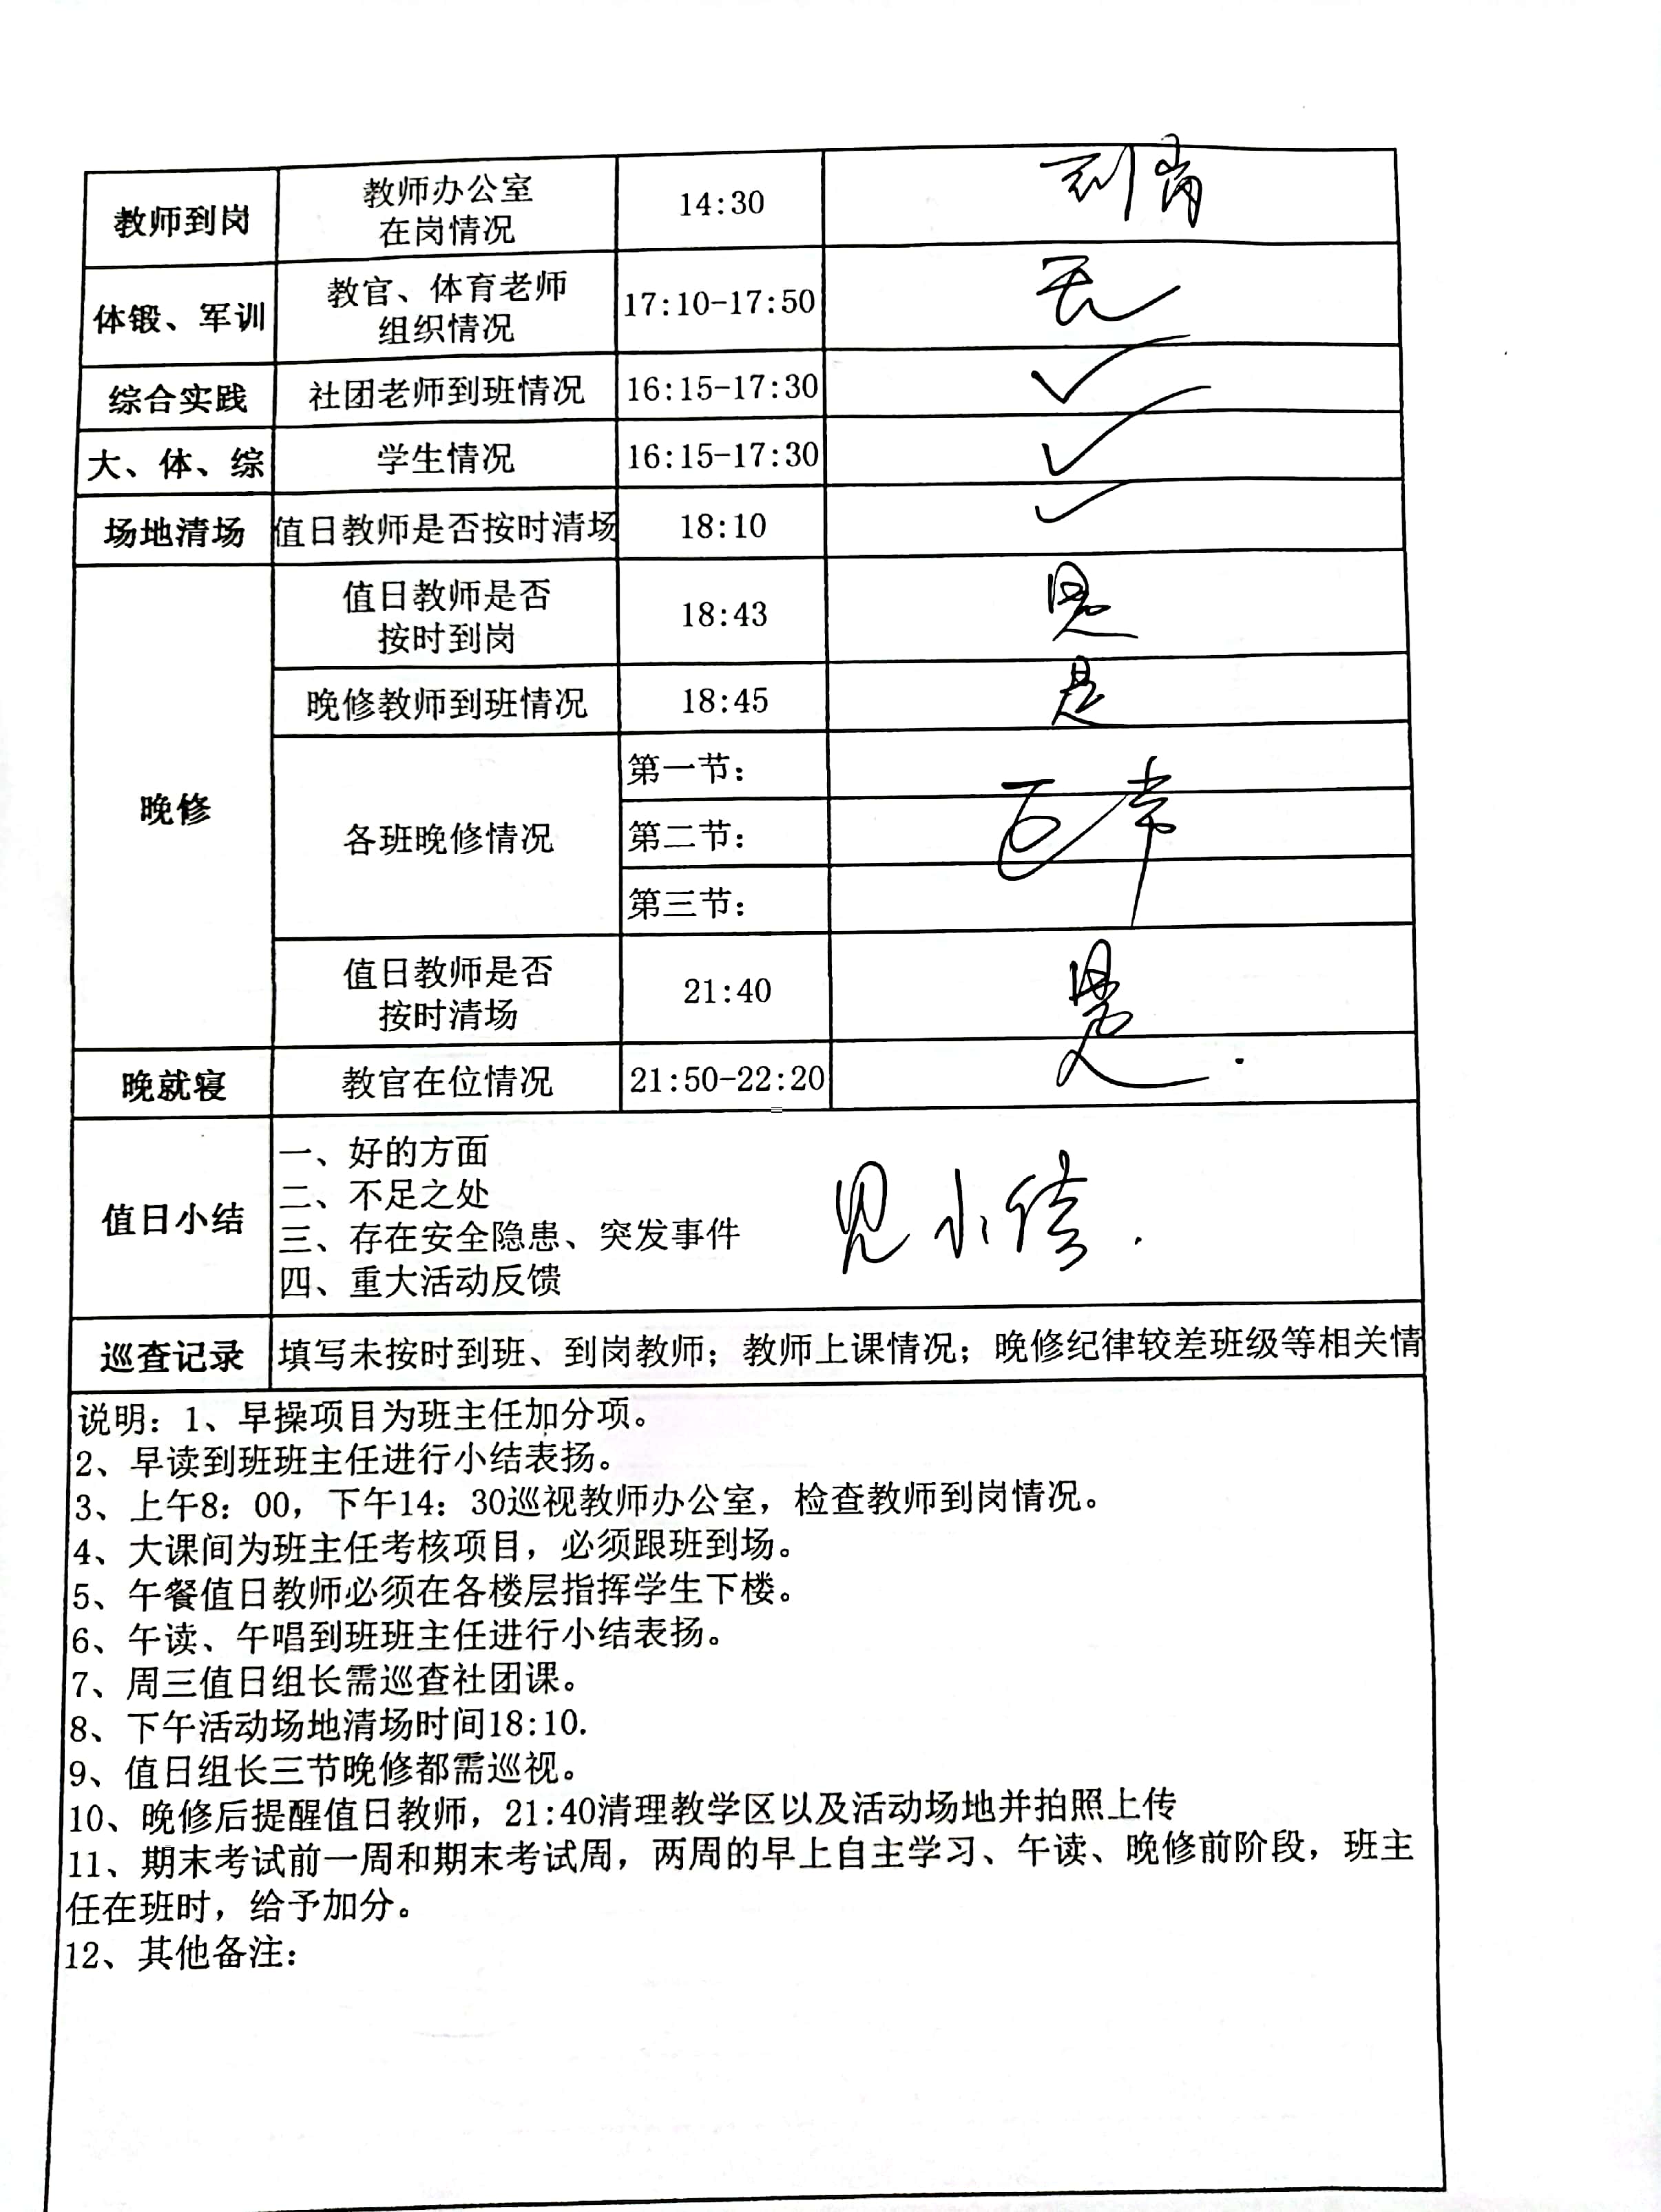 教师到岗 教师办公室 14:30 到岗
在岗情况
体锻、军训 教官、体育老师 17:10-17:50 无
组织情况
综合实践 社团老师到班情况 16:15-17:30 ✓
大、体、综 学生情况 16:15-17:30 ✓
场地清场 值日教师是否按时清场 18:10 ✓
晚修 值日教师是否 18:43 是
按时到岗
晚修教师到班情况 18:45 是
各班晚修情况 第一节:
第二节: 正常
第三节:
值日教师是否 21:40 是
按时清场
晚就寝 教官在位情况 21:50-22:20
值日小结 一、好的方面
二、不足之处
三、存在安全隐患、突发事件 见小结.
四、重大活动反馈
巡查记录 填写未按时到班、到岗教师；教师上课情况；晚修纪律较差班级等相关情
说明：1、早操项目为班主任加分项。
2、早读到班班主任进行小结表扬。
3、上午8：00，下午14：30巡视教师办公室，检查教师到岗情况。
4、大课间为班主任考核项目，必须跟班到场。
5、午餐值日教师必须在各楼层指挥学生下楼。
6、午读、午唱到班班主任进行小结表扬。
7、周三值日组长需巡查社团课。
8、下午活动场地清场时间18:10.
9、值日组长三节晚修都需巡视。
10、晚修后提醒值日教师，21:40清理教学区以及活动场地并拍照上传
11、期末考试前一周和期末考试周，两周的早上自主学习、午读、晚修前阶段，班主
任在班时，给予加分。
12、其他备注：